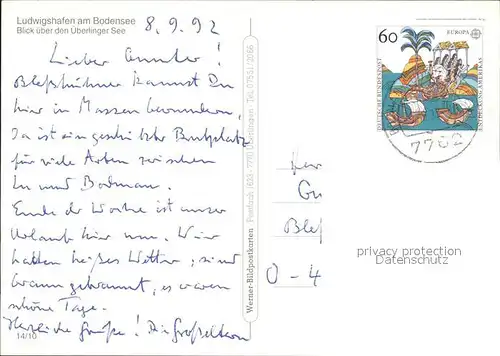 Ludwigshafen am Bodensee
Blick über den Überlinger See
8.9.92
Lieber Gunter!
Bleßhühner kannst Du
hier in Massen bewundern.
Da ist ein geschützter Brutplatz
für viele Arten zwischen
Lu und Bodman.
Ende der Woche ist unser
Urlaub hier um. Wir
hatten heißes Wetter, sind
braun gebrannt, es waren
schöne Tage.
Herzliche Grüße! Die Großeltern
14/10
Werner-Bildpostkarten
60
EUROPA
DEUTSCHE BUNDESPOST
7762
Herr
Gu
Bleß
O-4
privacy protection
Datenschutz